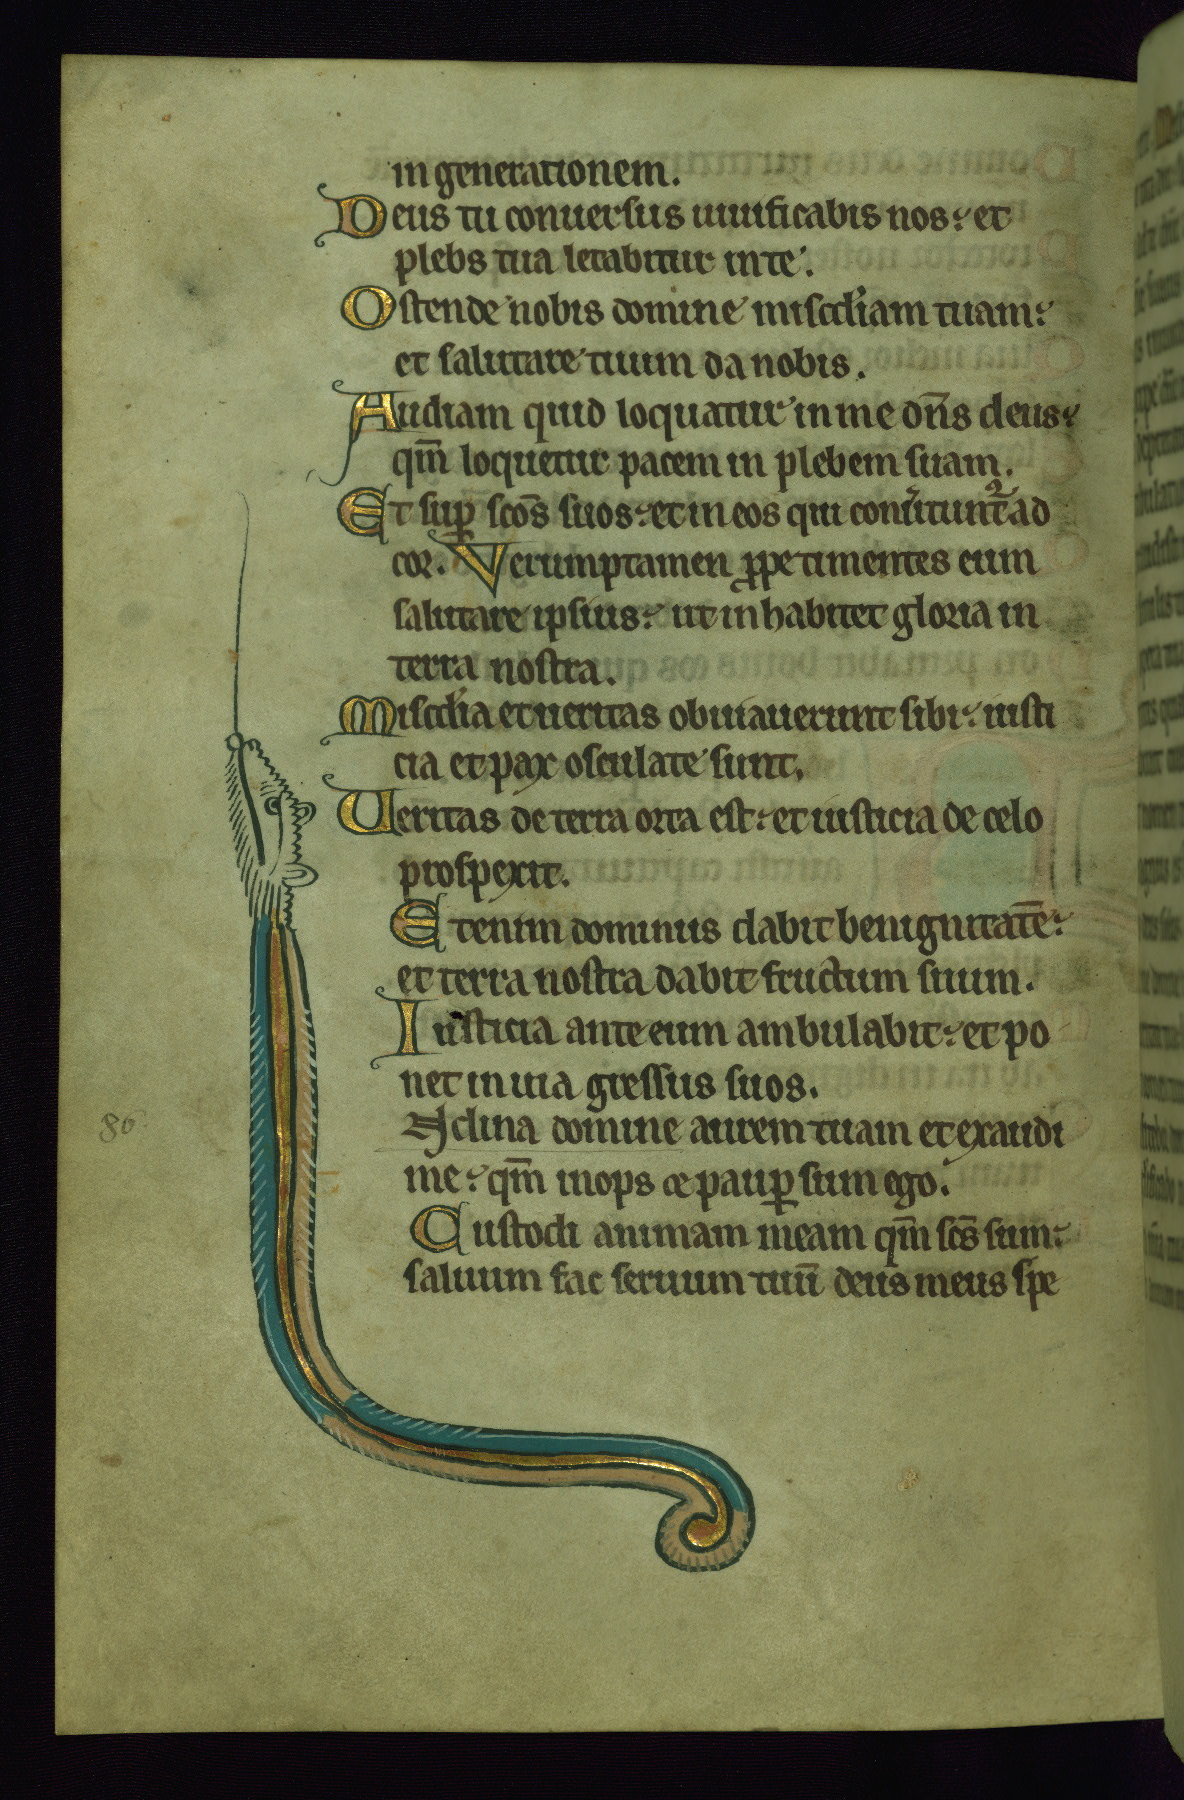 in generationem.
Deus tu conuersus uiuificabis nos: et
plebs tua letabitur in te.
Ostende nobis domine miscd'iam tuam:
et salutare tuum da nobis.
Audiam quid loquatur in me dn̄s deus:
qm̄ loquetur pacem in plebem suam.
Et sup̲ scōs suos: et in eos qui conu'tunt᷑ ad
cor. Verumptamen p̲pe timentes eum
salutare ipsius: ut inhabitet gloria in
terra nostra.
Miscd'ia et ueritas obuiauerunt sibi: iusti
cia et pax osculate sunt.
Ueritas de terra orta est: et iusticia de celo
prospexit.
Etenim dominus dabit benignitatē:
et terra nostra dabit fructum suum.
Iusticia ante eum ambulabit: et po
net in uia gressus suos.
Inclina domine aurem tuam et exaudi
me: qm̄ inops et paup̲ sum ego.
Custodi animam meam qm̄ scs̄ sum:
saluum fac seruum tuū deus meus spe
80